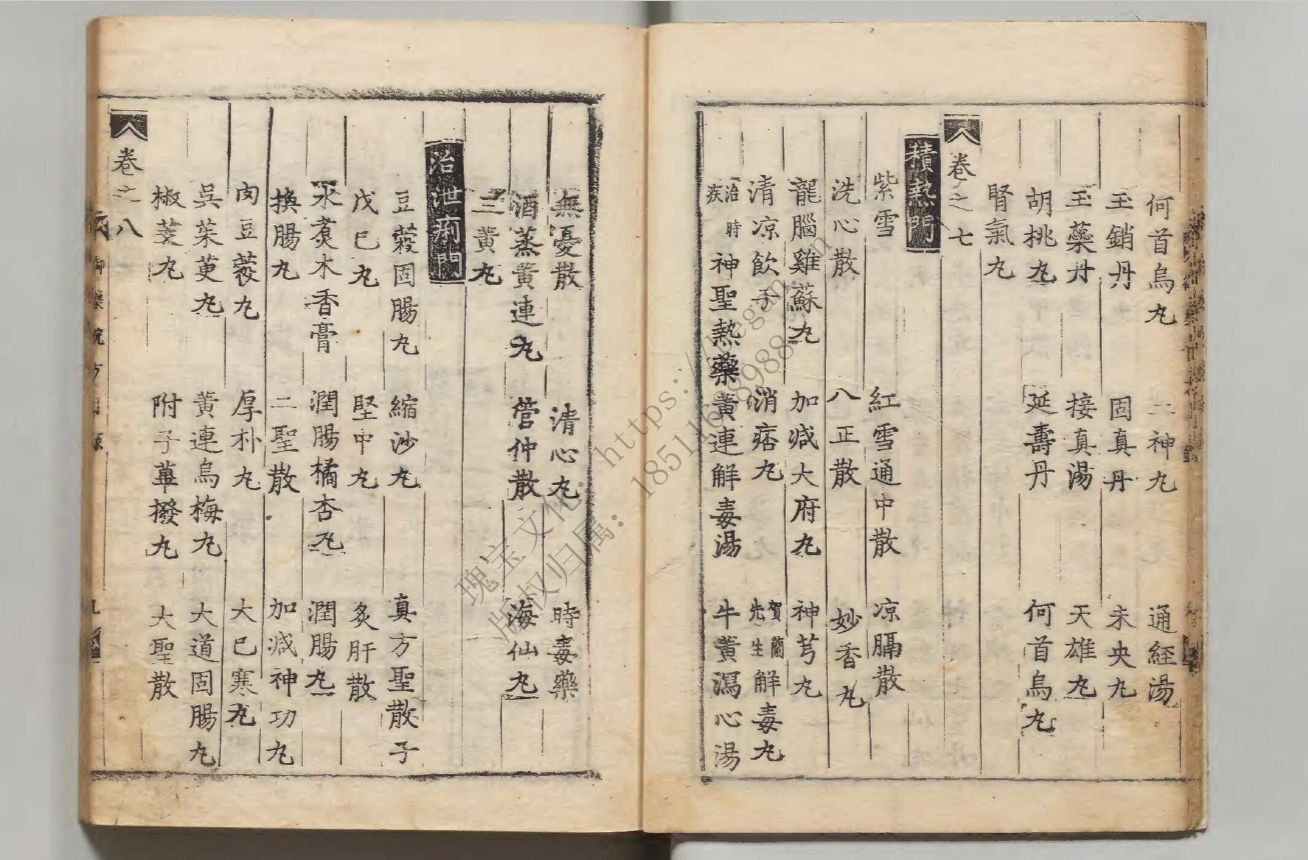 何首烏丸 二神丸 通経湯
玉鎖丹 固真丹 未央丸
玉藥丹 接真湯 天雄丸
胡桃丸 延壽丹 何首烏丸
腎氣丸
卷之七
積熱門
紫雪 紅雪通中散 凉膈散
洗心散 八正散 妙香丸
龍腦雞蘇丸 加减大府丸 神芎丸
清凉飲子 消痞丸 賀蘭先生解毒丸
治時疾神聖熱藥黄連解毒湯 牛黄瀉心湯
無憂散 清心丸 時毒藥
酒蒸黄連丸 管仲散 海仙丸
三黄丸
治泄痢門
豆蔻固腸丸 縮沙丸 真方聖散子
戊巳丸 堅中丸 炙肝散
水煮木香膏 潤腸橘杏丸 潤腸丸
換腸丸 二聖散 加减神功丸
肉豆蔻丸 厚朴丸 大巳寒丸
吳茱萸丸 黄連烏梅丸 大道固腸丸
椒茰丸 附子蓽撥丸 大聖散
卷之八
御藥院方目録
瑰宝文化:https://
版权归属: